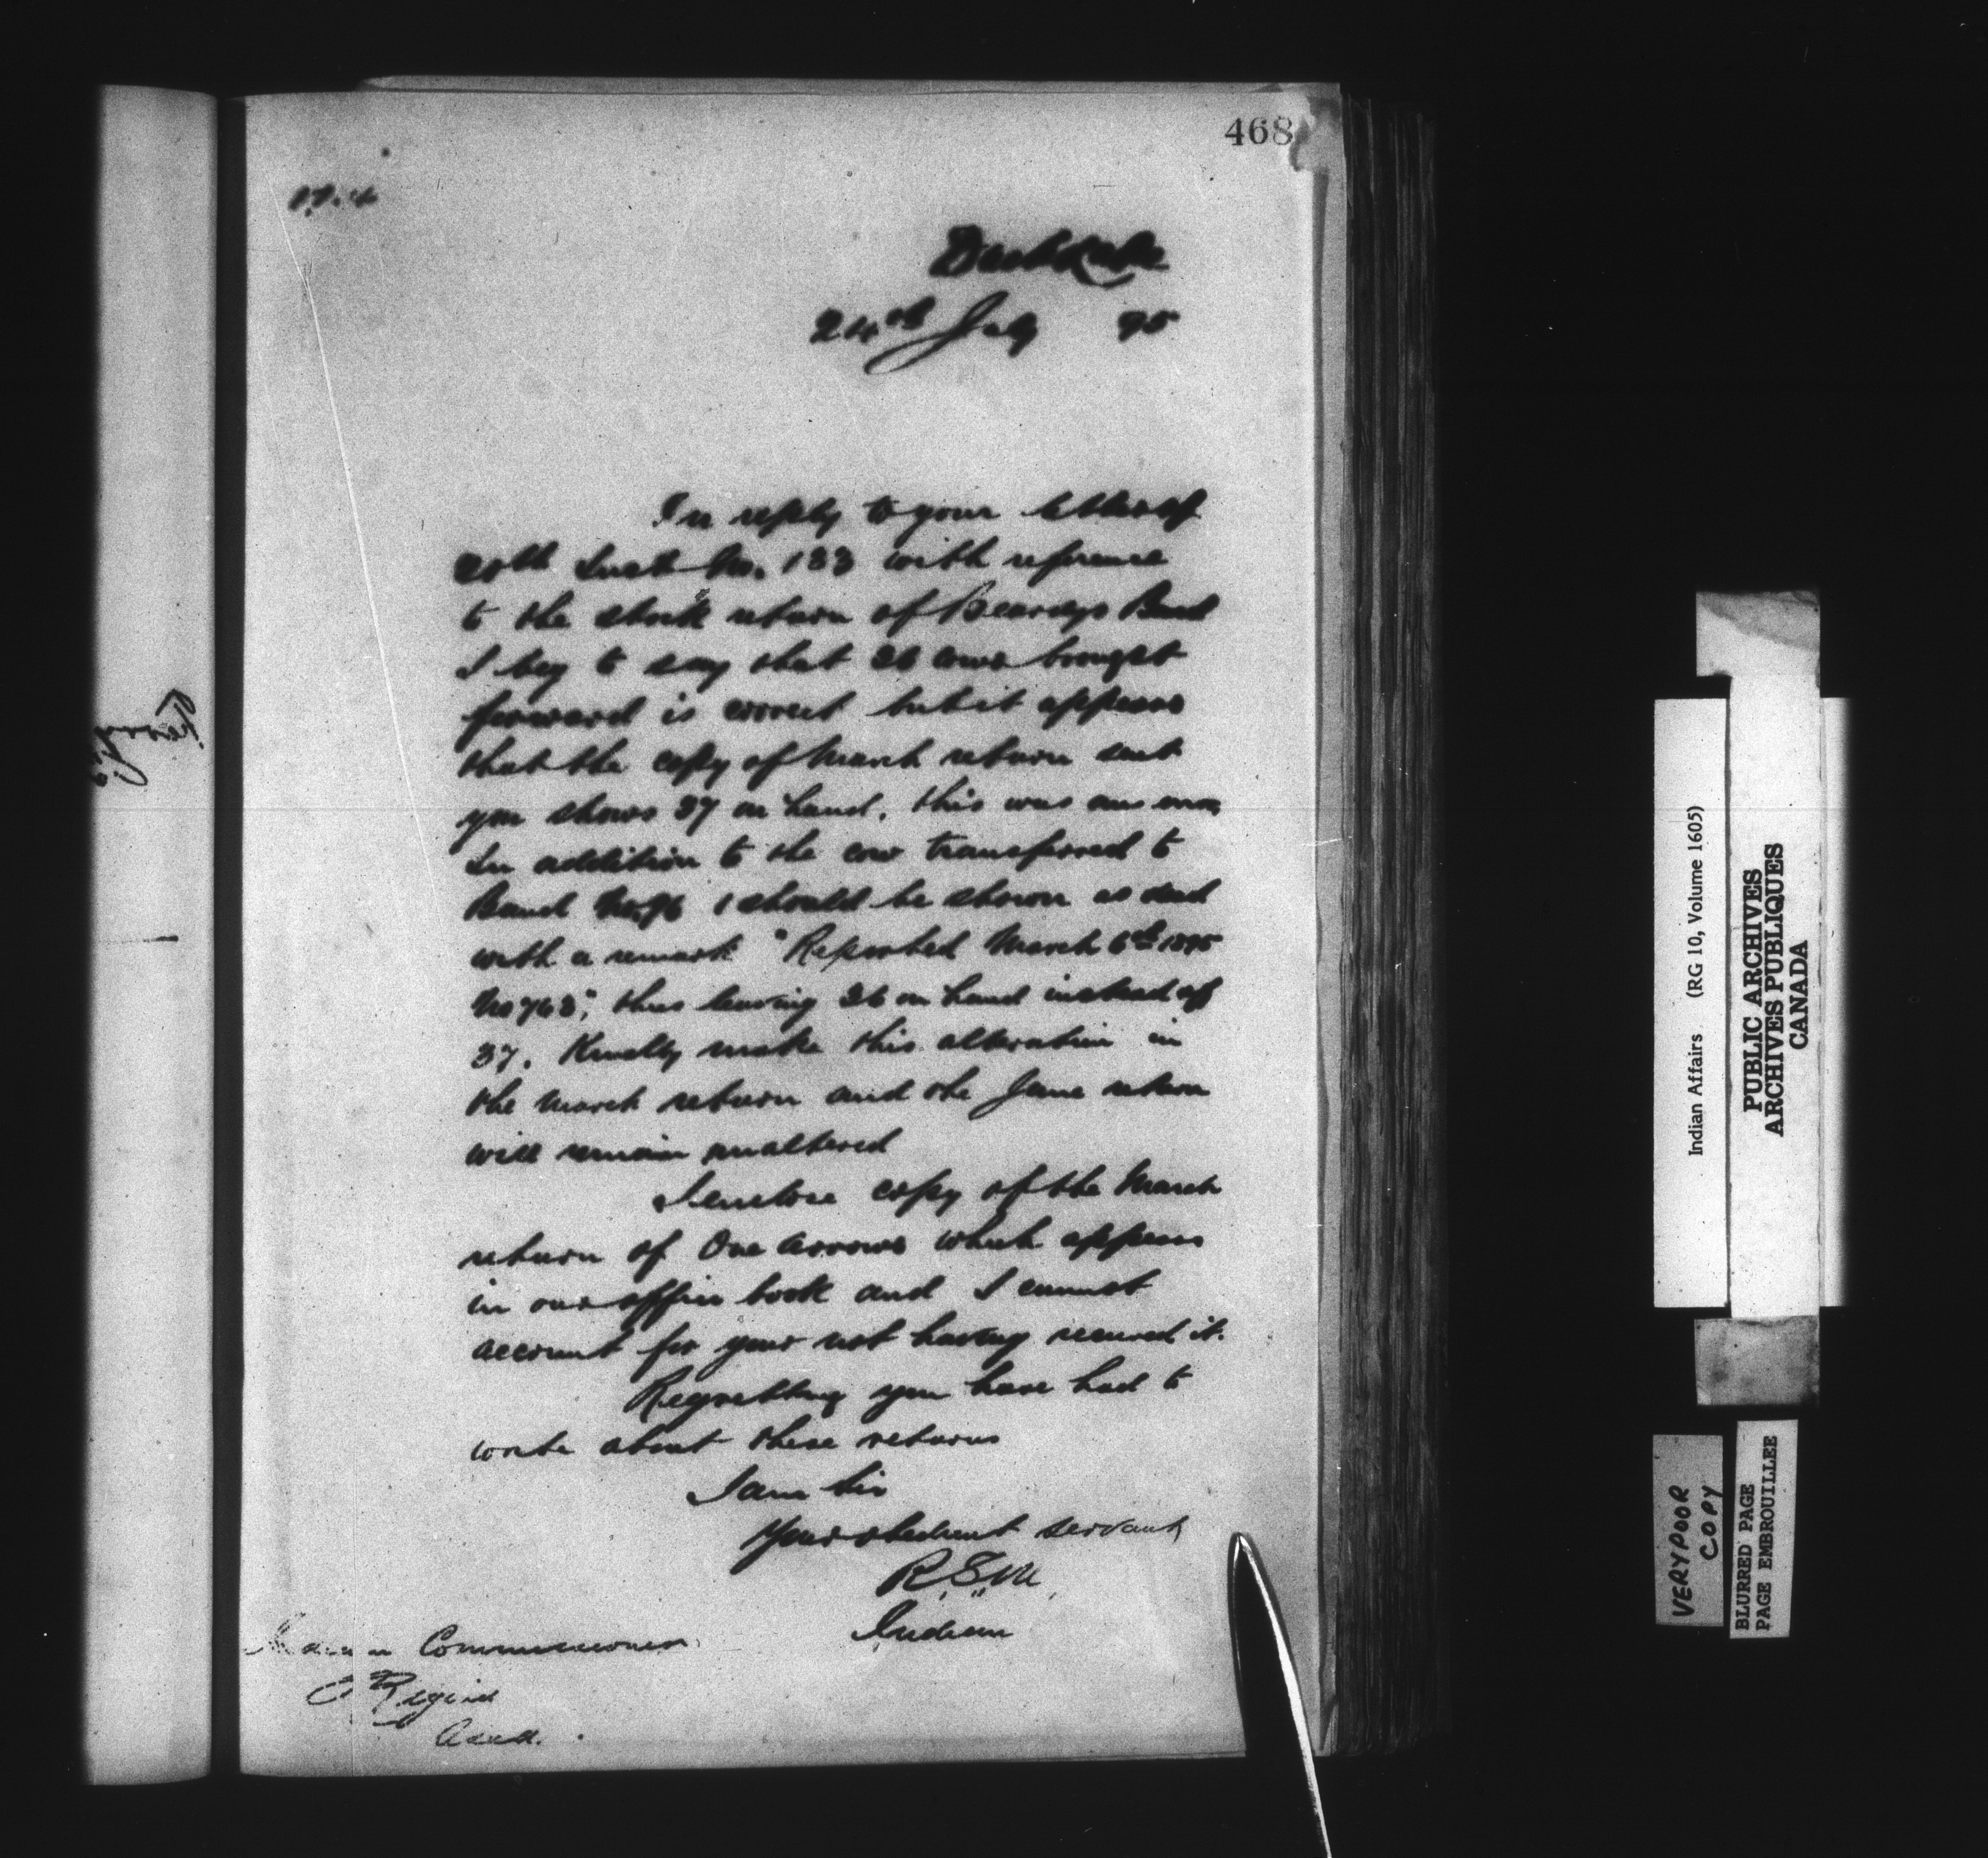 468
Duck Lake
24th July 95
In reply to your letter of
20th Inst No. 133 with reference
to the stock return of Beardys Band
I beg to say that 36 cows brought
forward is correct but it appears
that the copy of March return sent
you shows 37 on hand, this was an error
In addition to the cow transferred to
Band No. 96 1 should be shown as dead
with a remark "Reported March 6th 1895
No 763", thus leaving 36 on hand instead of
37. Kindly make this alteration in
the March return and the June return
will remain unaltered
I enclose copy of the March
return of One Arrows which appears
in our office book and I cannot
account for your not having received it.
Regretting you have had to
write about these returns
I am Sir
Your obedient servant
R.S.M
Indian
Commissioner
Regina
Assa.
Indian Affairs (RG 10, Volume 1605)
PUBLIC ARCHIVES
ARCHIVES PUBLIQUES
CANADA
VERY POOR
COPY
BLURRED PAGE
PAGE EMBROUILLEE